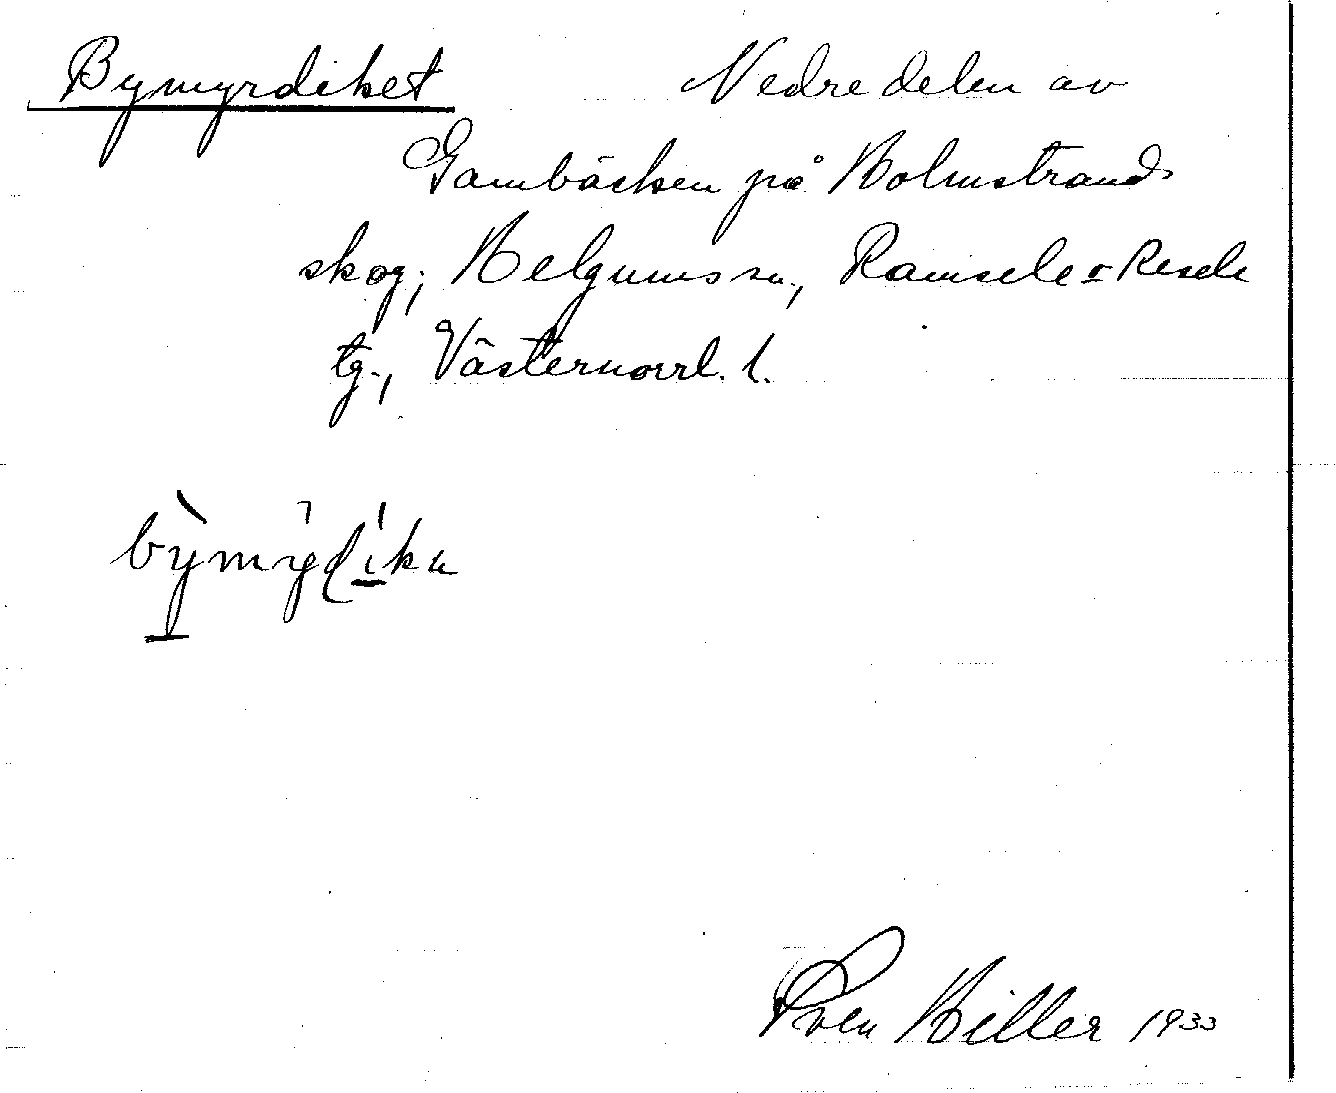 Bymyrdiket Nedre delen av
Gambäcken på Holmstrands
skog, Helgums sn., Ramsele o Resele
tg., Västernorrl. l.
bỳmýdíkn
Sven Hiller 1933